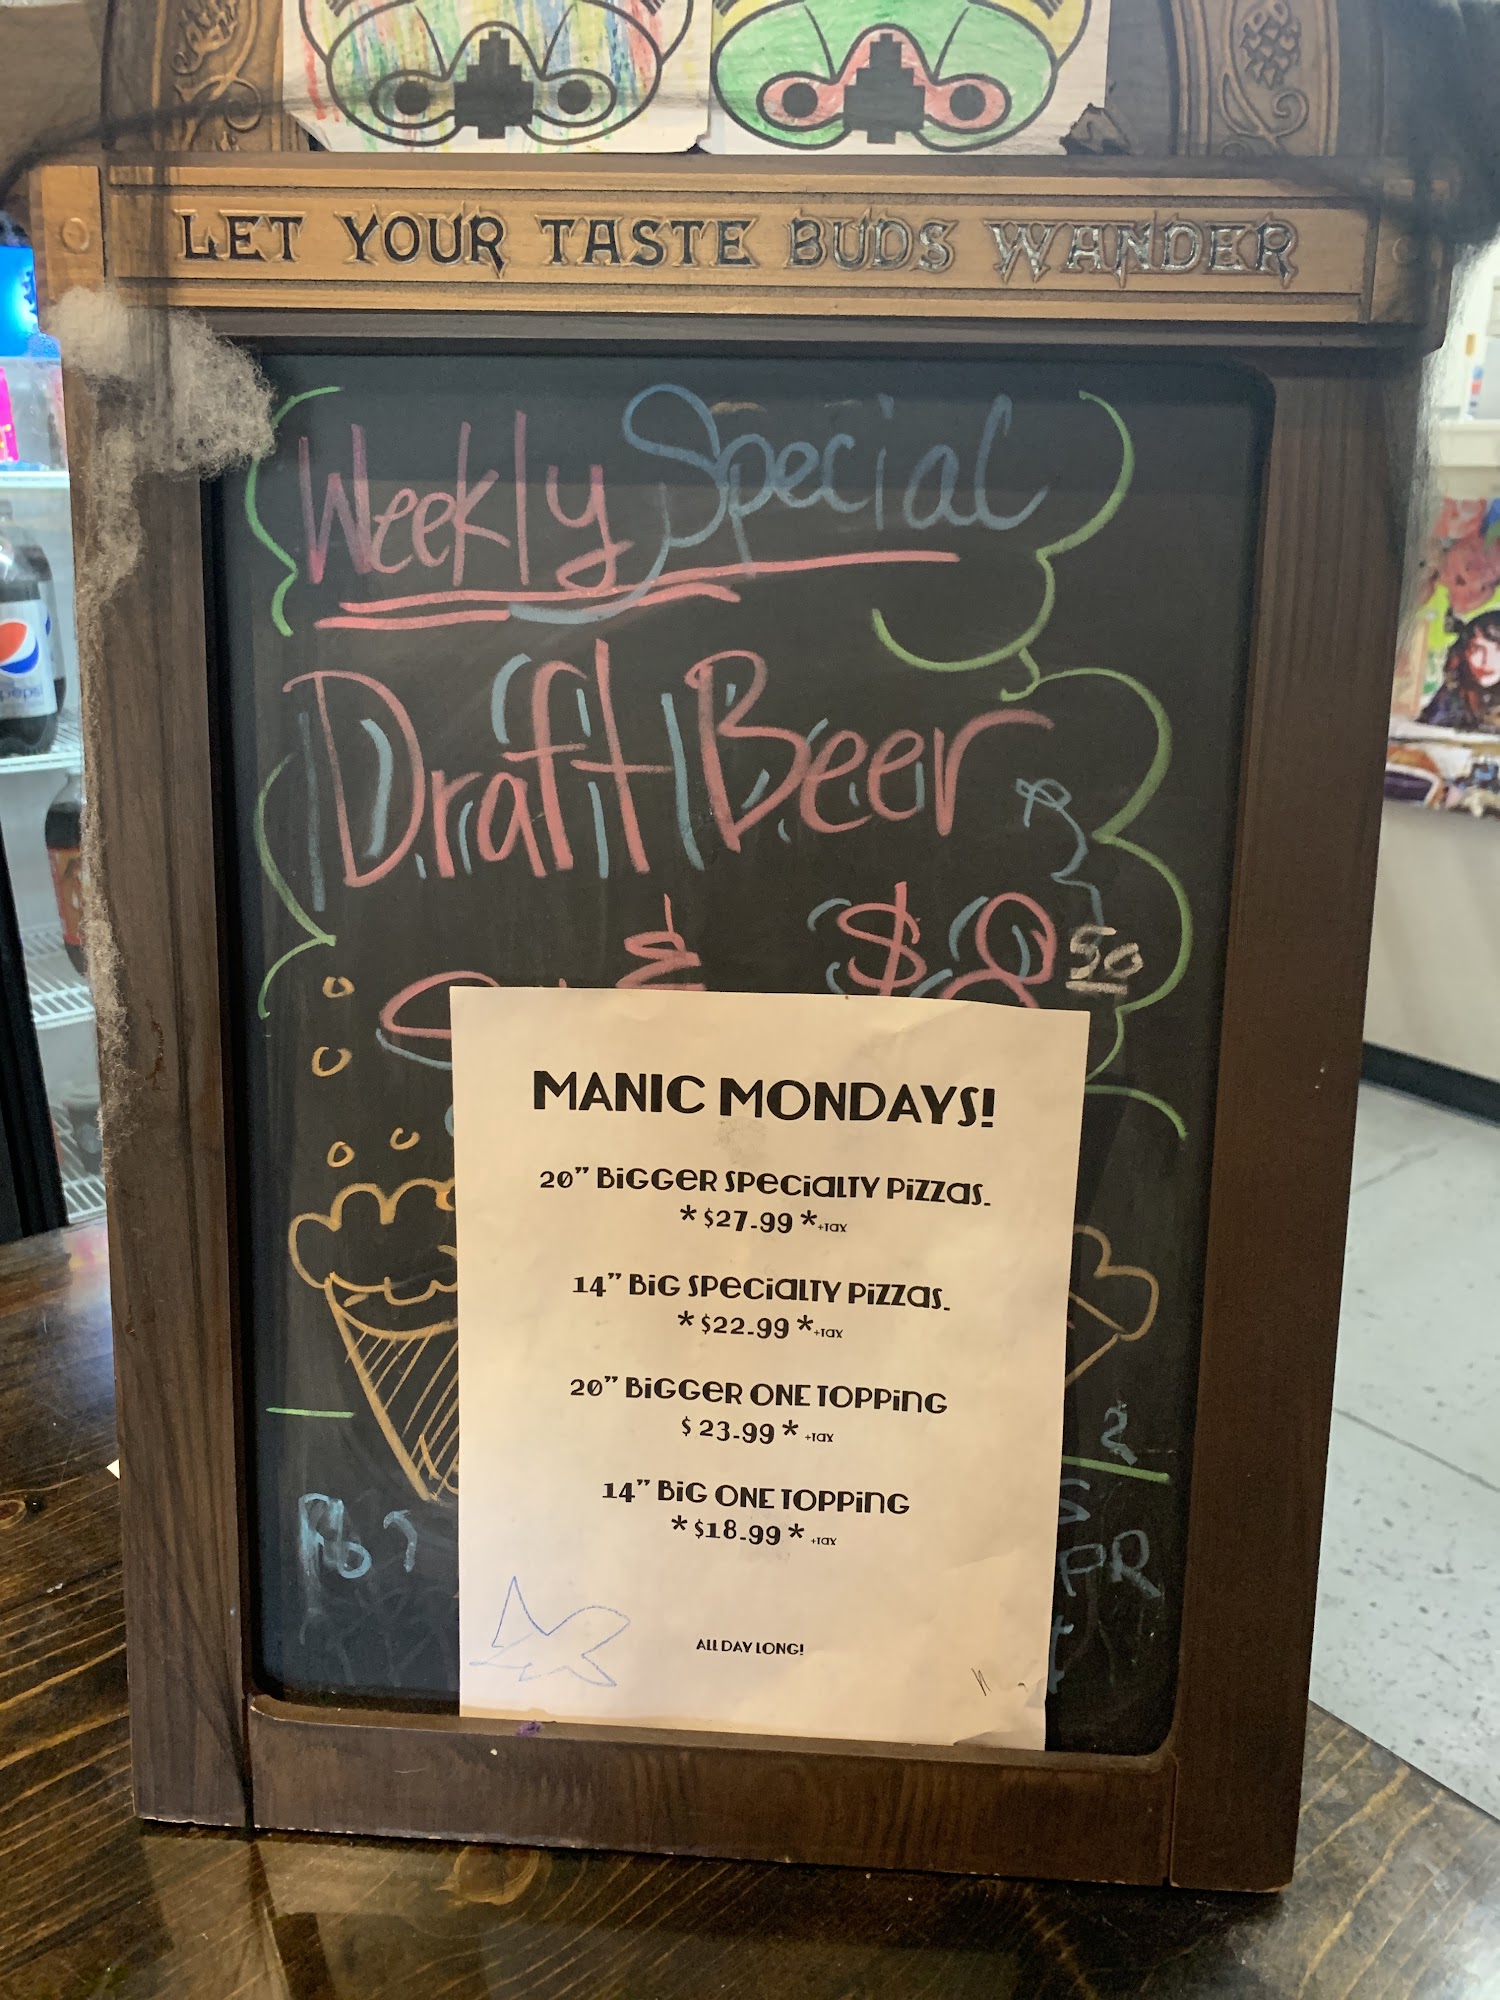 LET YOUR TASTE BUDS WANDER
Weekly Special
Draft Beer
& $8 50
MANIC MONDAYS!
20” BIGGER SPECIALTY PIZZAS.
* $27.99 *+TAX
14” BIG SPECIALTY PIZZAS.
* $22.99 *+TAX
20” BIGGER ONE TOPPING
$ 23.99 * +TAX
14” BIG ONE TOPPING
* $18.99 * +TAX
ALL DAY LONG!
pepsi